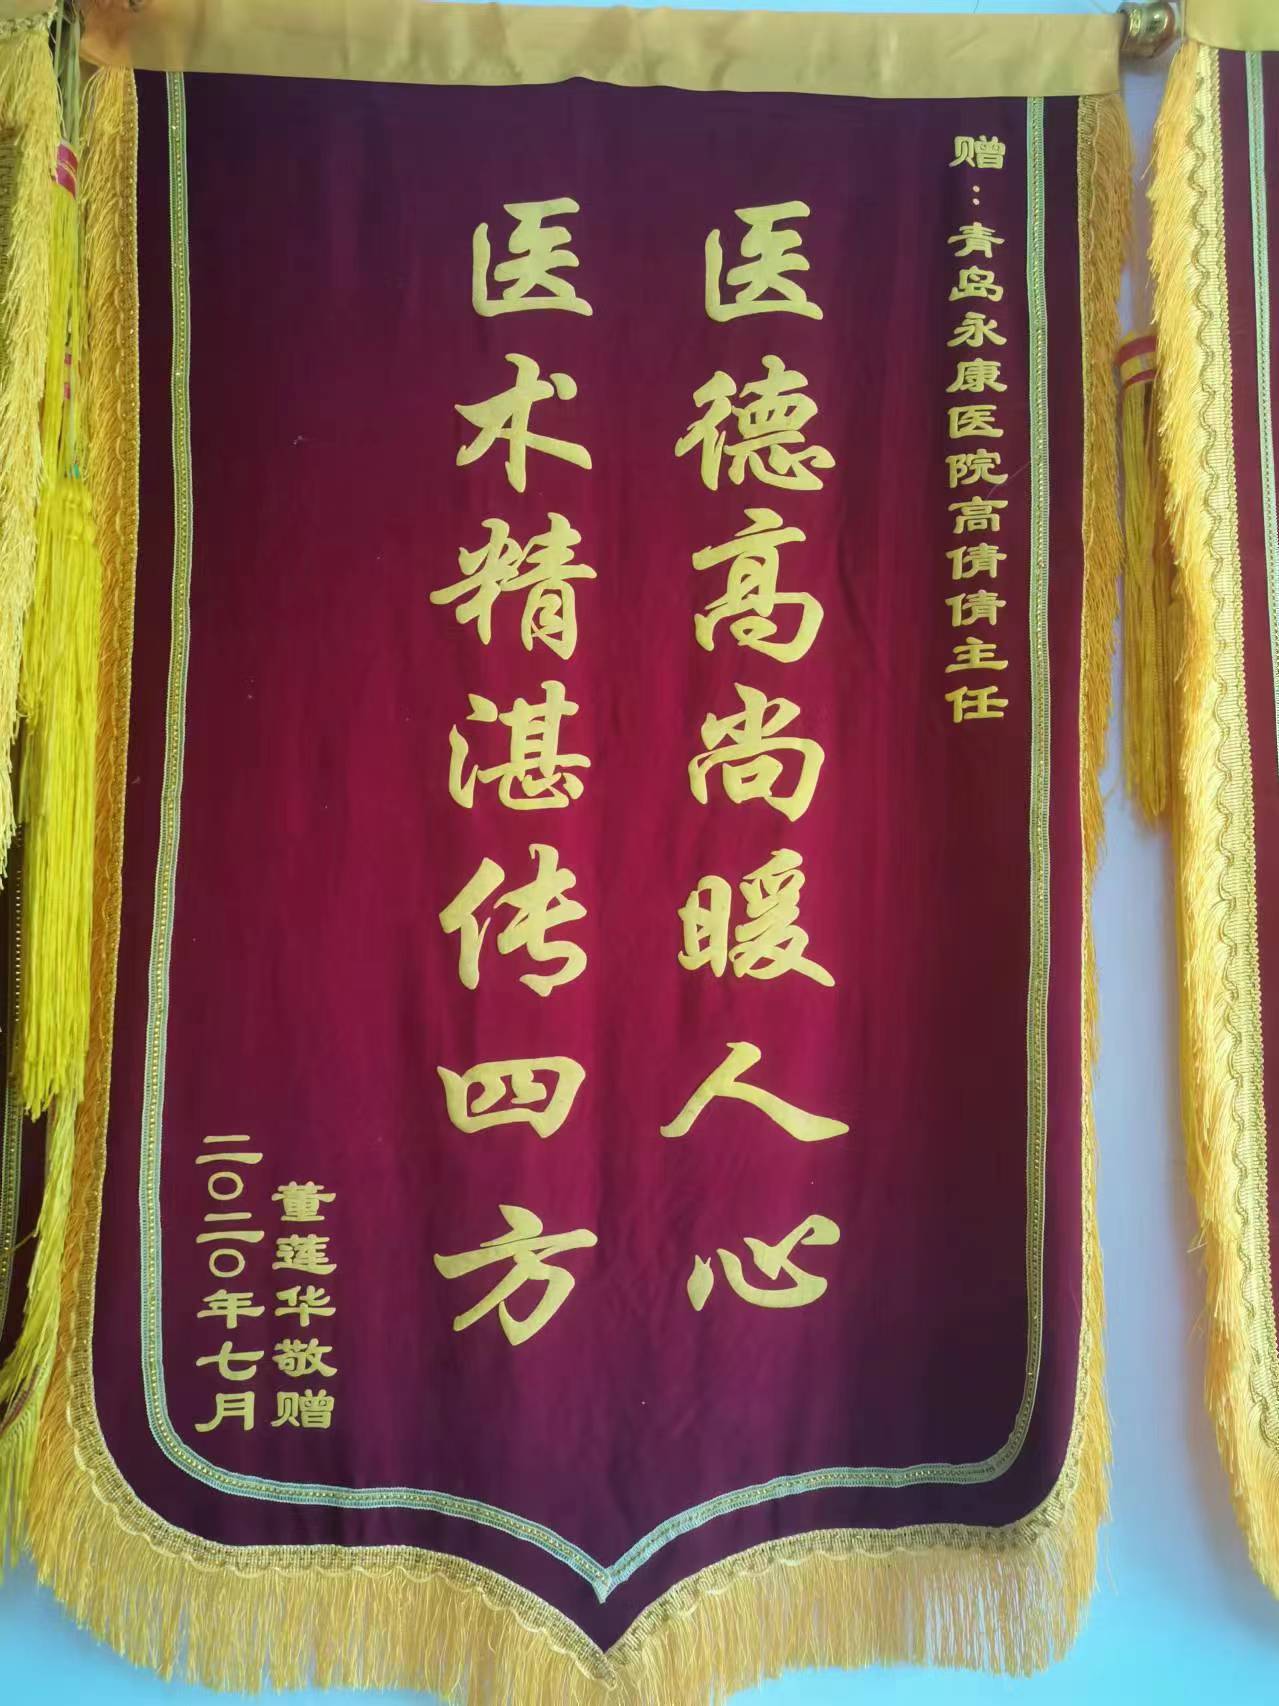 赠：青岛永康医院高倩倩主任
医德高尚暖人心
医术精湛传四方
董莲华敬赠
二〇二〇年七月